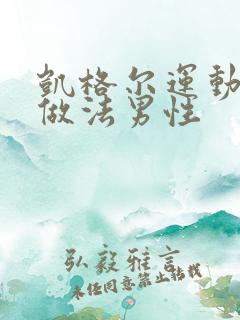 凱格尔運動
做法男性
弘毅雅言
未经同意禁止转载